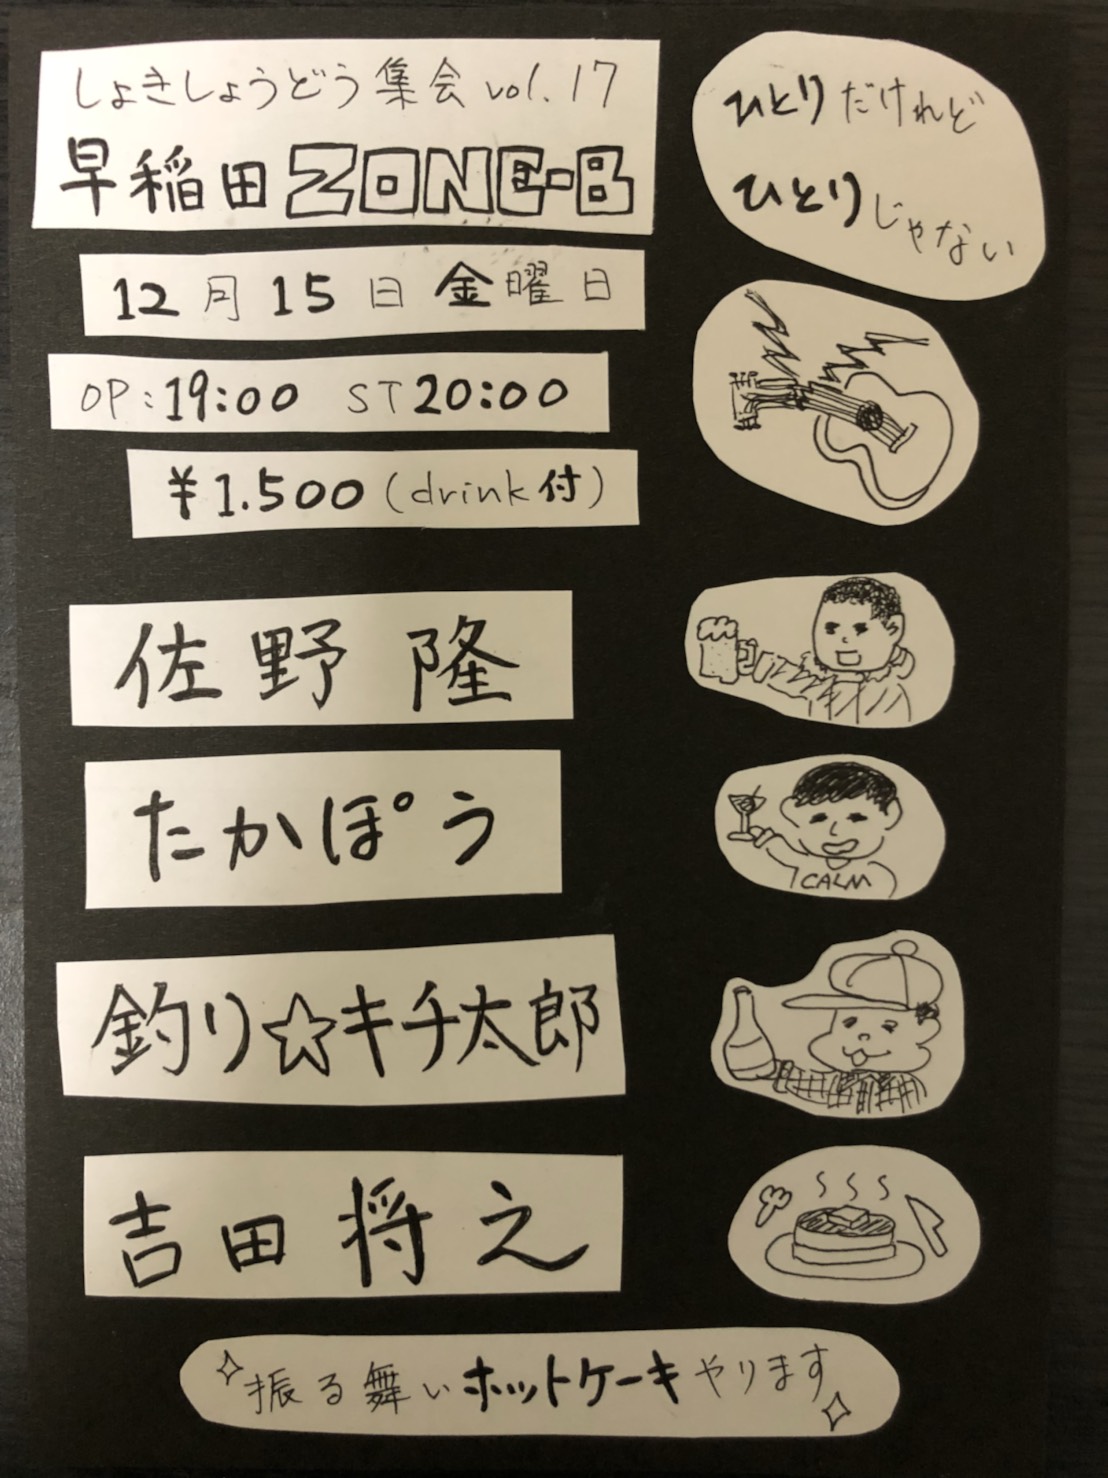 しょきしょうどう集会vol.17
早稲田ZONE-B
12月15日金曜日
OP:19:00 ST20:00
¥1.500(drink付)
ひとりだけれど
ひとりじゃない
佐野隆
たかぽう
CALM
釣り☆キチ太郎
吉田将之
振る舞いホットケーキやります